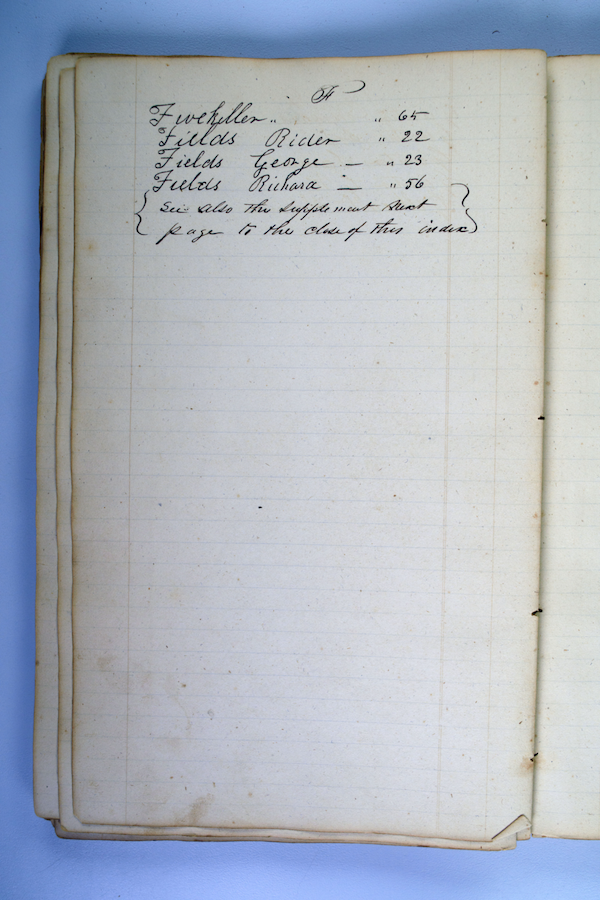 F
Fivekiller " " 65
Fields Rider " 22
Fields George — " 23
Fields Richard — " 56
{ See also the supplement next }
{ page to the close of this index }